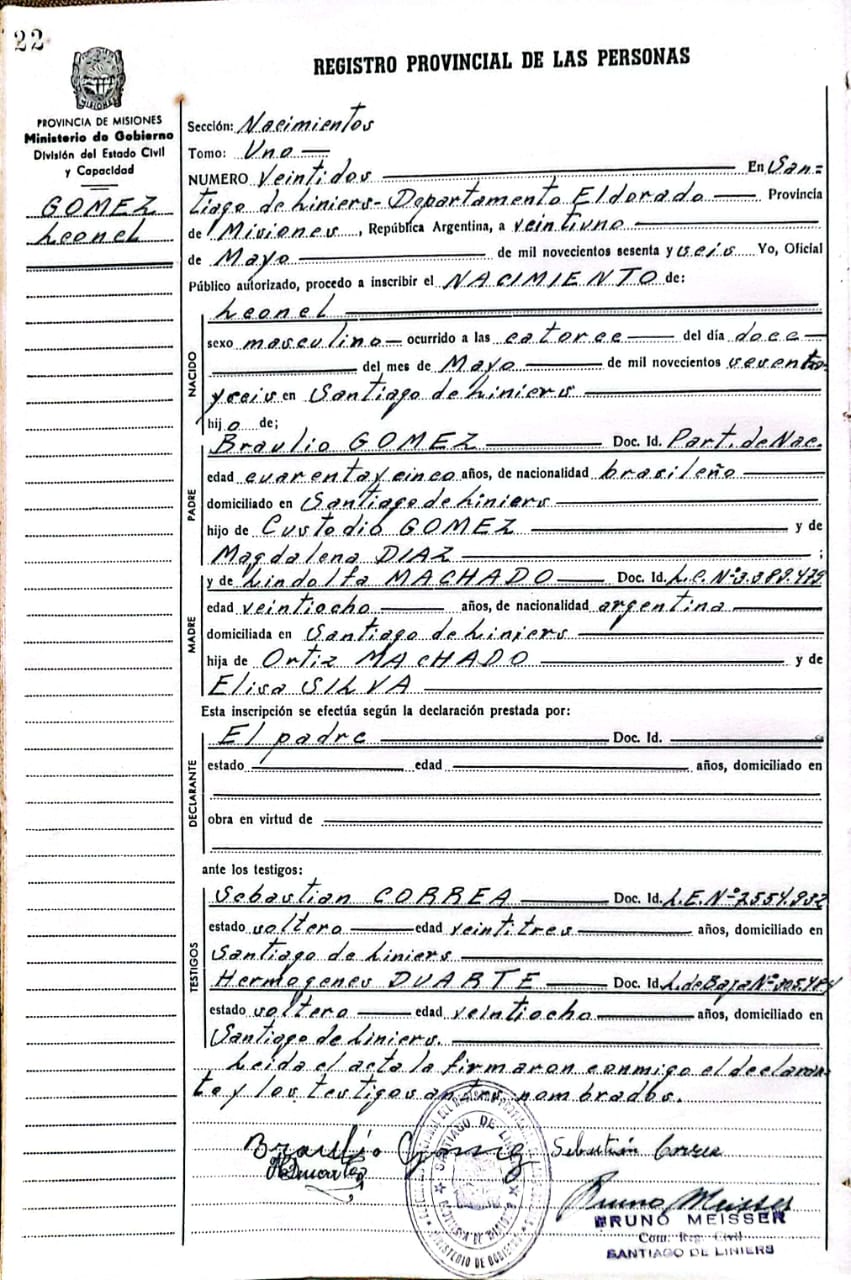 22
REGISTRO PROVINCIAL DE LAS PERSONAS
PROVINCIA DE MISIONES
Ministerio de Gobierno
División del Estado Civil
y Capacidad
GOMEZ
Leonel
Sección: Nacimientos
Tomo: Uno
NUMERO Veintidos En San=
tiago de Liniers - Departamento Eldorado Provincia
de Misiones, República Argentina, a veintiuno
de Mayo de mil novecientos sesenta y seis Yo, Oficial
Público autorizado, procedo a inscribir el NACIMIENTO de:
Leonel
NACIDO
sexo masculino ocurrido a las catorce del día doce
del mes de Mayo de mil novecientos sesenta
y seis en Santiago de Liniers
hijo de;
PADRE
Braulio GOMEZ Doc. Id. Part. de Nac.
edad cuarenta y cinco años, de nacionalidad brasileño
domiciliado en Santiago de Liniers
hijo de Custodio GOMEZ y de
Magdalena DIAZ ;
MADRE
y de Lindolfa MACHADO Doc. Id. L.C. Nº 3.389.479
edad veintiocho años, de nacionalidad argentina
domiciliada en Santiago de Liniers
hija de Ortiz MACHADO y de
Elisa SILVA
Esta inscripción se efectúa según la declaración prestada por:
DECLARANTE
El padre Doc. Id.
estado edad años, domiciliado en
obra en virtud de
ante los testigos:
TESTIGOS
Sebastian CORREA Doc. Id. L.E. Nº 7.554.932
estado soltero edad veintitres años, domiciliado en
Santiago de Liniers
Hermogenes DUARTE Doc. Id. L. de Baja Nº
estado soltero edad veintiocho años, domiciliado en
Santiago de Liniers.
Leida el acta la firmaron conmigo el declaran-
te y los testigos antes nombrados.
Braulio Gomez Sebastián Correa
HDuarte
Bruno Meisser
BRUNO MEISSER
Com. Reg. Civil
SANTIAGO DE LINIERS
SANTIAGO DE LINIERS
MINISTERIO DE GOBIERNO